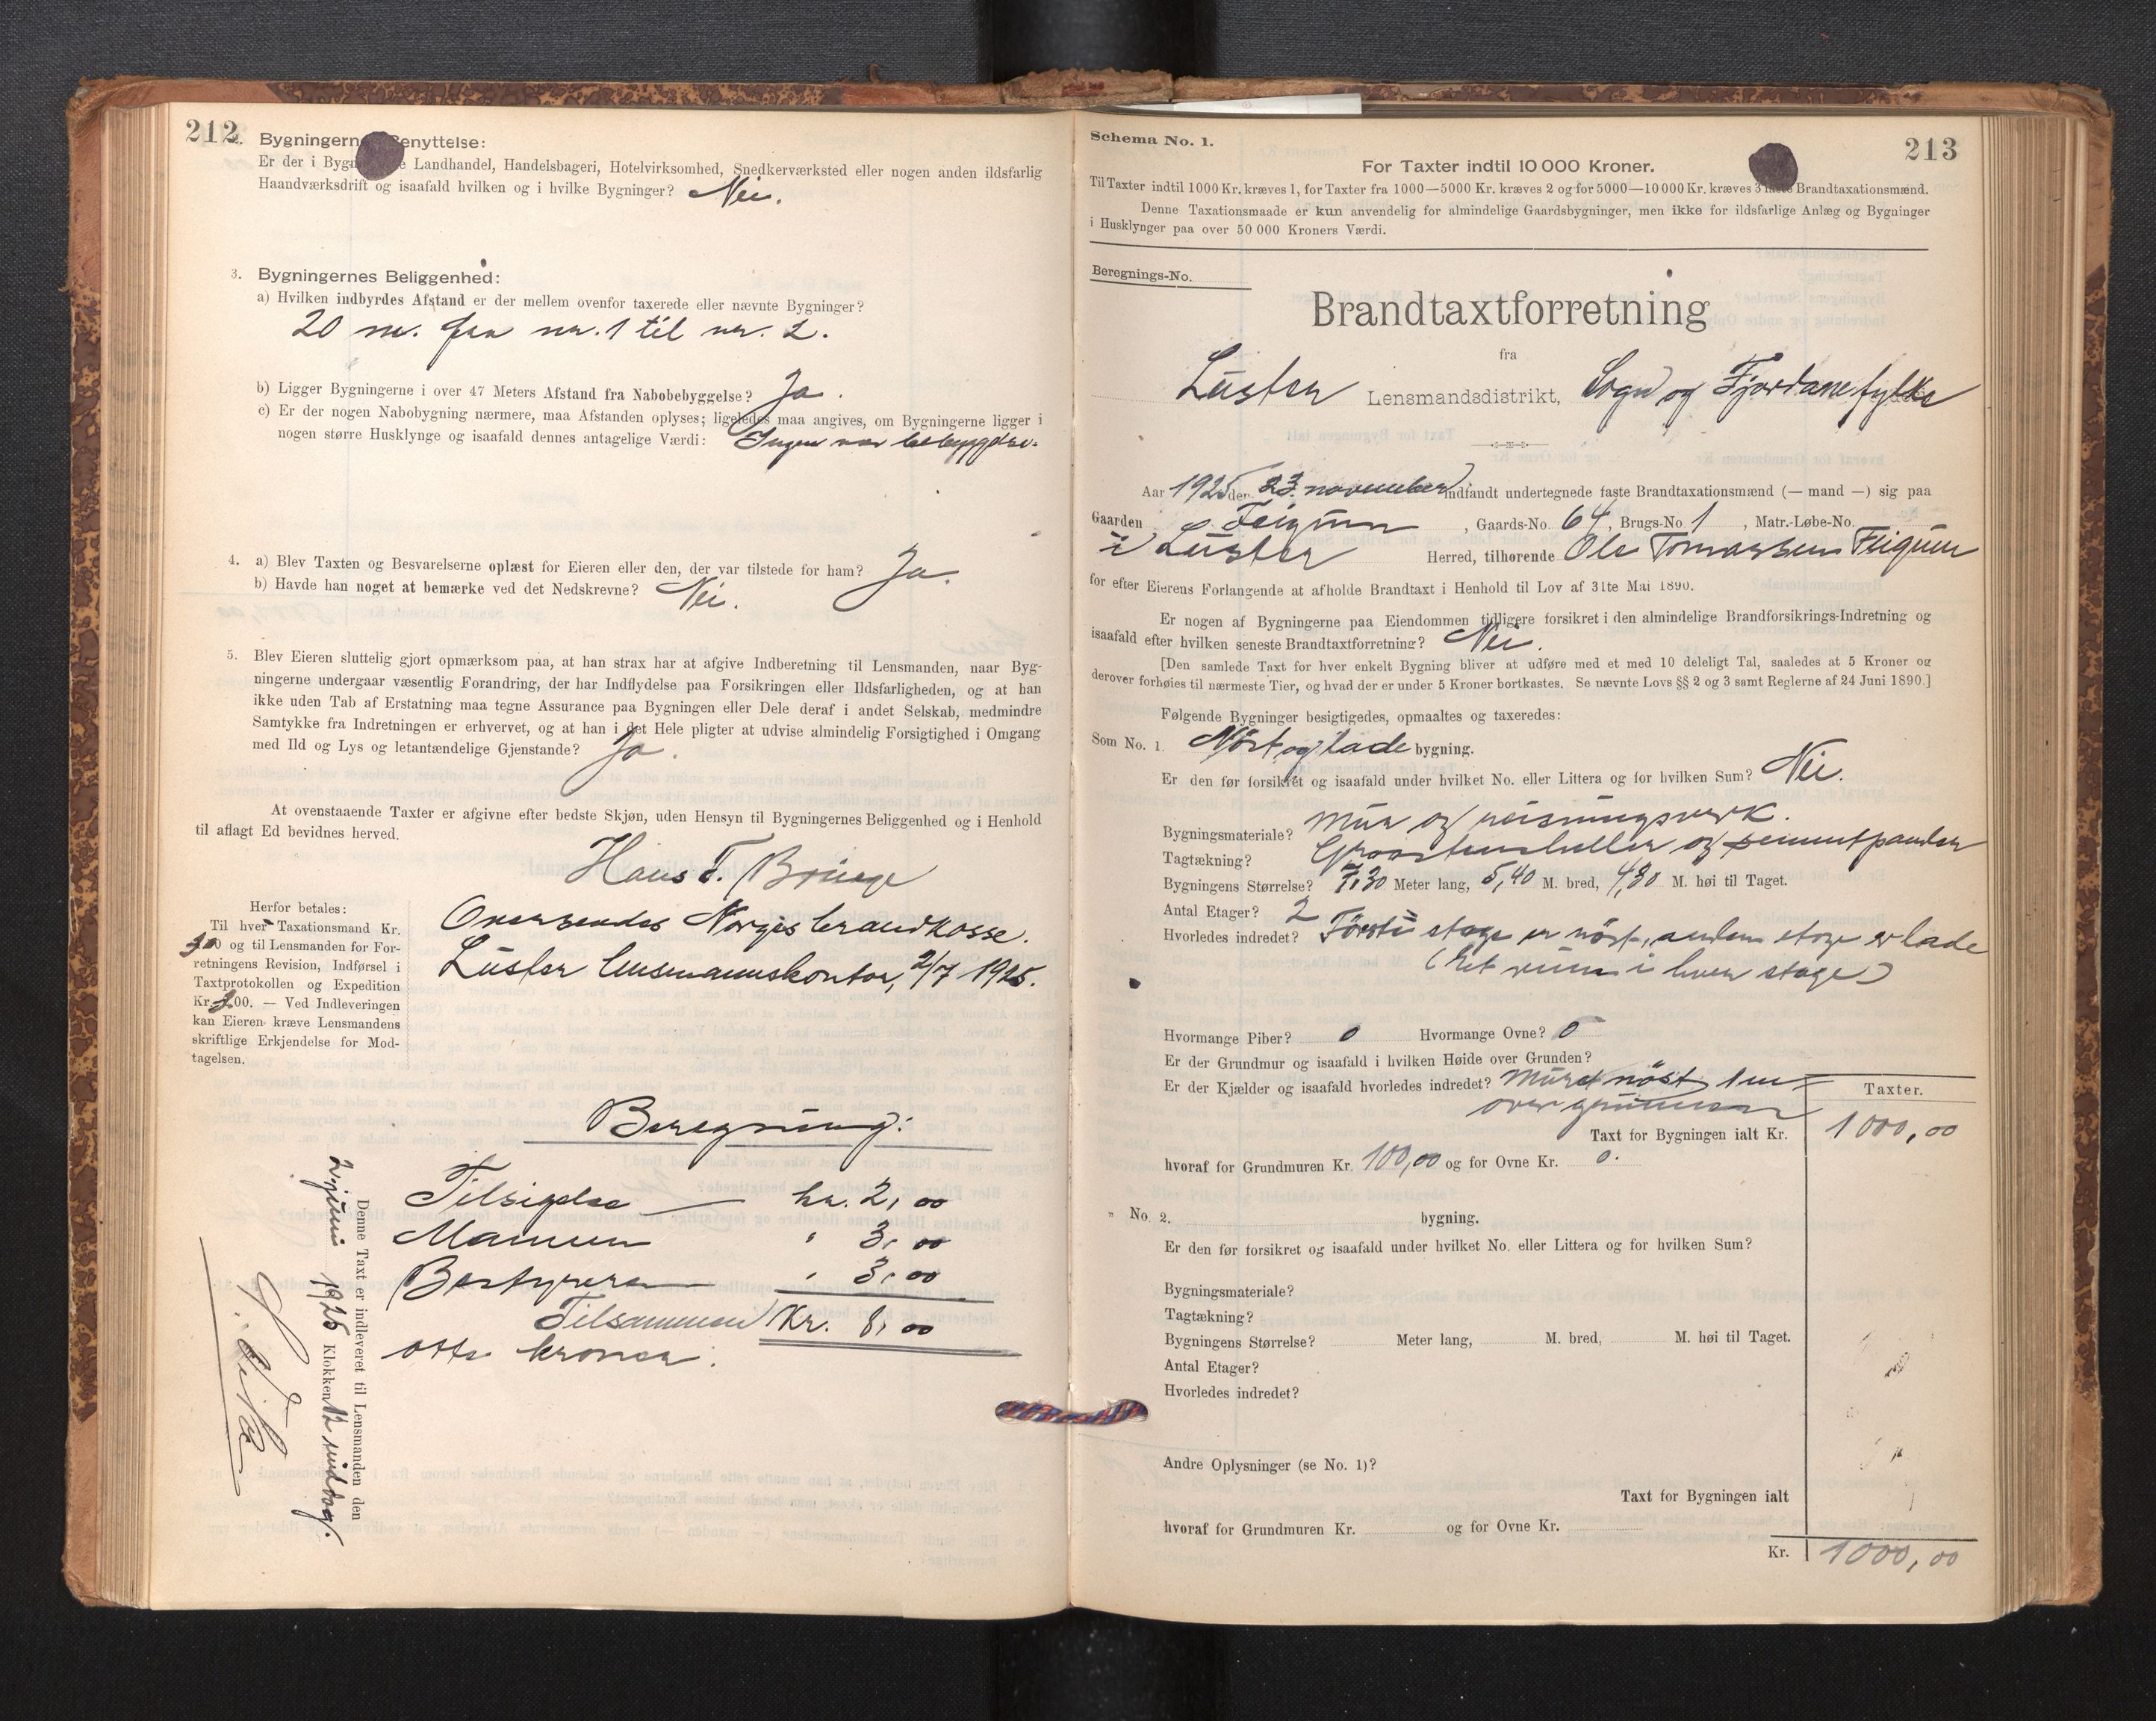 212
2. Bygningernes Benyttelse:
Er der i Bygningerne Landhandel, Handelsbageri, Hotelvirksomhed, Snedkerværksted eller nogen anden ildsfarlig
Haandværksdrift og isaafald hvilken og i hvilke Bygninger? Nei.
3. Bygningernes Beliggenhed:
a) Hvilken indbyrdes Afstand er der mellem ovenfor taxerede eller nævnte Bygninger?
20 m. fra nr. 1 til nr. 2.
b) Ligger Bygningerne i over 47 Meters Afstand fra Nabobebyggelse? Ja.
c) Er der nogen Nabobygning nærmere, maa Afstanden oplyses; ligeledes maa angives, om Bygningerne ligger i
nogen større Husklynge og isaafald dennes antagelige Værdi: Ingen nær bebyggelse.
4. a) Blev Taxten og Besvarelserne oplæst for Eieren eller den, der var tilstede for ham? Ja.
b) Havde han noget at bemærke ved det Nedskrevne? Nei.
5. Blev Eieren sluttelig gjort opmærksom paa, at han strax har at afgive Indberetning til Lensmanden, naar Byg-
ningerne undergaar væsentlig Forandring, der har Indflydelse paa Forsikringen eller Ildsfarligheden, og at han
ikke uden Tab af Erstatning maa tegne Assurance paa Bygningen eller Dele deraf i andet Selskab, medmindre
Samtykke fra Indretningen er erhvervet, og at han i det Hele pligter at udvise almindelig Forsigtighed i Omgang
med Ild og Lys og letantændelige Gjenstande? Ja.
At ovenstaaende Taxter er afgivne efter bedste Skjøn, uden Hensyn til Bygningernes Beliggenhed og i Henhold
til aflagt Ed bevidnes herved.
Hans T. Bringe
Oversendes Norges brandkasse.
Luster lensmannskontor, 2/7 1925.
Herfor betales:
Til hver Taxationsmand Kr.
3,00 og til Lensmanden for For-
retningens Revision, Indførsel i
Taxtprotokollen og Expedition
Kr. 2,00. — Ved Indleveringen
kan Eieren kræve Lensmandens
skriftlige Erkjendelse for Mod-
tagelsen.
Beregning:
Tilsigelse kr. 2,00
Mannen " 3,00
Bestyrere " 3,00
Tilsammen Kr. 8,00
otte kroner.
Denne Taxt er indleveret til Lensmanden den
2 juni 1925 Klokken 12 middag.
Schema No. 1.
213
For Taxter indtil 10 000 Kroner.
Til Taxter indtil 1000 Kr. kræves 1, for Taxter fra 1000—5000 Kr. kræves 2 og for 5000—10 000 Kr. kræves 3 faste Brandtaxationsmænd.
Denne Taxationsmaade er kun anvendelig for almindelige Gaardsbygninger, men ikke for ildsfarlige Anlæg og Bygninger
i Husklynger paa over 50 000 Kroners Værdi.
Beregnings-No.
Brandtaxtforretning
fra
Luster Lensmandsdistrikt, Sogn og Fjordane fylke
Aar 1925 den 23. november indfandt undertegnede faste Brandtaxationsmænd (— mand —) sig paa
Gaarden Feigum, Gaards-No. 64, Brugs-No. 1, Matr.-Løbe-No.
i Luster Herred, tilhørende Ole Tomassen Feigum
for efter Eierens Forlangende at afholde Brandtaxt i Henhold til Lov af 31te Mai 1890.
Er nogen af Bygningerne paa Eiendommen tidligere forsikret i den almindelige Brandforsikrings-Indretning og
isaafald efter hvilken seneste Brandtaxtforretning? Nei.
[Den samlede Taxt for hver enkelt Bygning bliver at udføre med et med 10 deleligt Tal, saaledes at 5 Kroner og
derover forhøies til nærmeste Tier, og hvad der er under 5 Kroner bortkastes. Se nævnte Lovs §§ 2 og 3 samt Reglerne af 24 Juni 1890.]
Følgende Bygninger besigtigedes, opmaaltes og taxeredes:
Som No. 1. Nøst og lade bygning.
Er den før forsikret og isaafald under hvilket No. eller Littera og for hvilken Sum? Nei.
Bygningsmateriale? Mur og reisningsverk.
Tagtækning? Graastensheller og sementpander
Bygningens Størrelse? 7,30 Meter lang, 5,40 M. bred, 4,80 M. høi til Taget.
Antal Etager? 2
Hvorledes indredet? Første etage er nøst, anden etage er lade
(Et rum i hver etage)
Hvormange Piber? 0 Hvormange Ovne? 0
Er der Grundmur og isaafald i hvilken Høide over Grunden?
Er der Kjælder og isaafald hvorledes indredet? Muret nøst 1 m
over grunnen
Taxter.
Taxt for Bygningen ialt Kr. 1000,00
hvoraf for Grundmuren Kr. 100,00 og for Ovne Kr. 0.
" No. 2. bygning.
Er den før forsikret og isaafald under hvilket No. eller Littera og for hvilken Sum?
Bygningsmateriale?
Tagtækning?
Bygningens Størrelse? Meter lang, M. bred, M. høi til Taget.
Antal Etager?
Hvorledes indredet?
Andre Oplysninger (se No. 1)?
Taxt for Bygningen ialt
hvoraf for Grundmuren Kr. og for Ovne Kr.
Kr. 1000,00